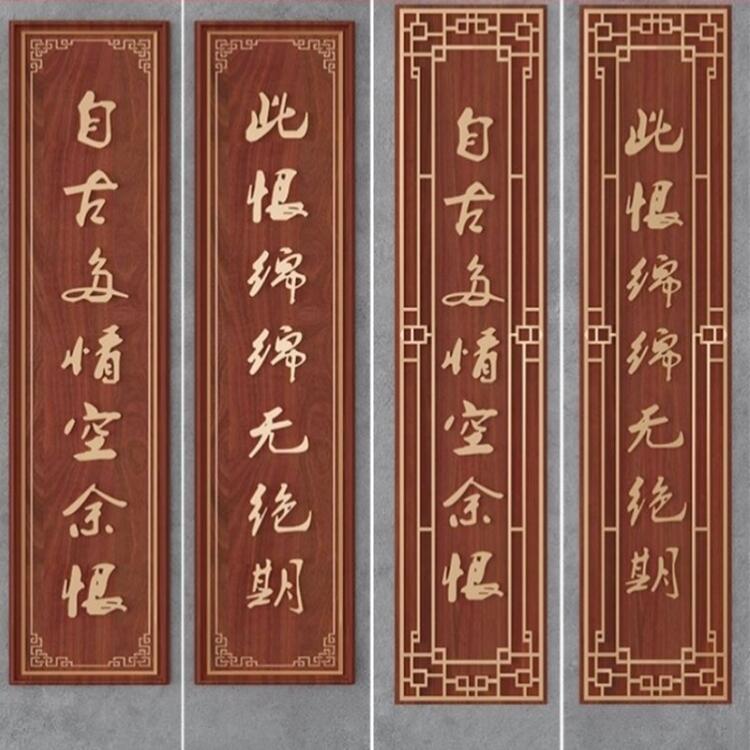 自古多情空余恨
此恨绵绵无绝期
自古多情空余恨
此恨绵绵无绝期